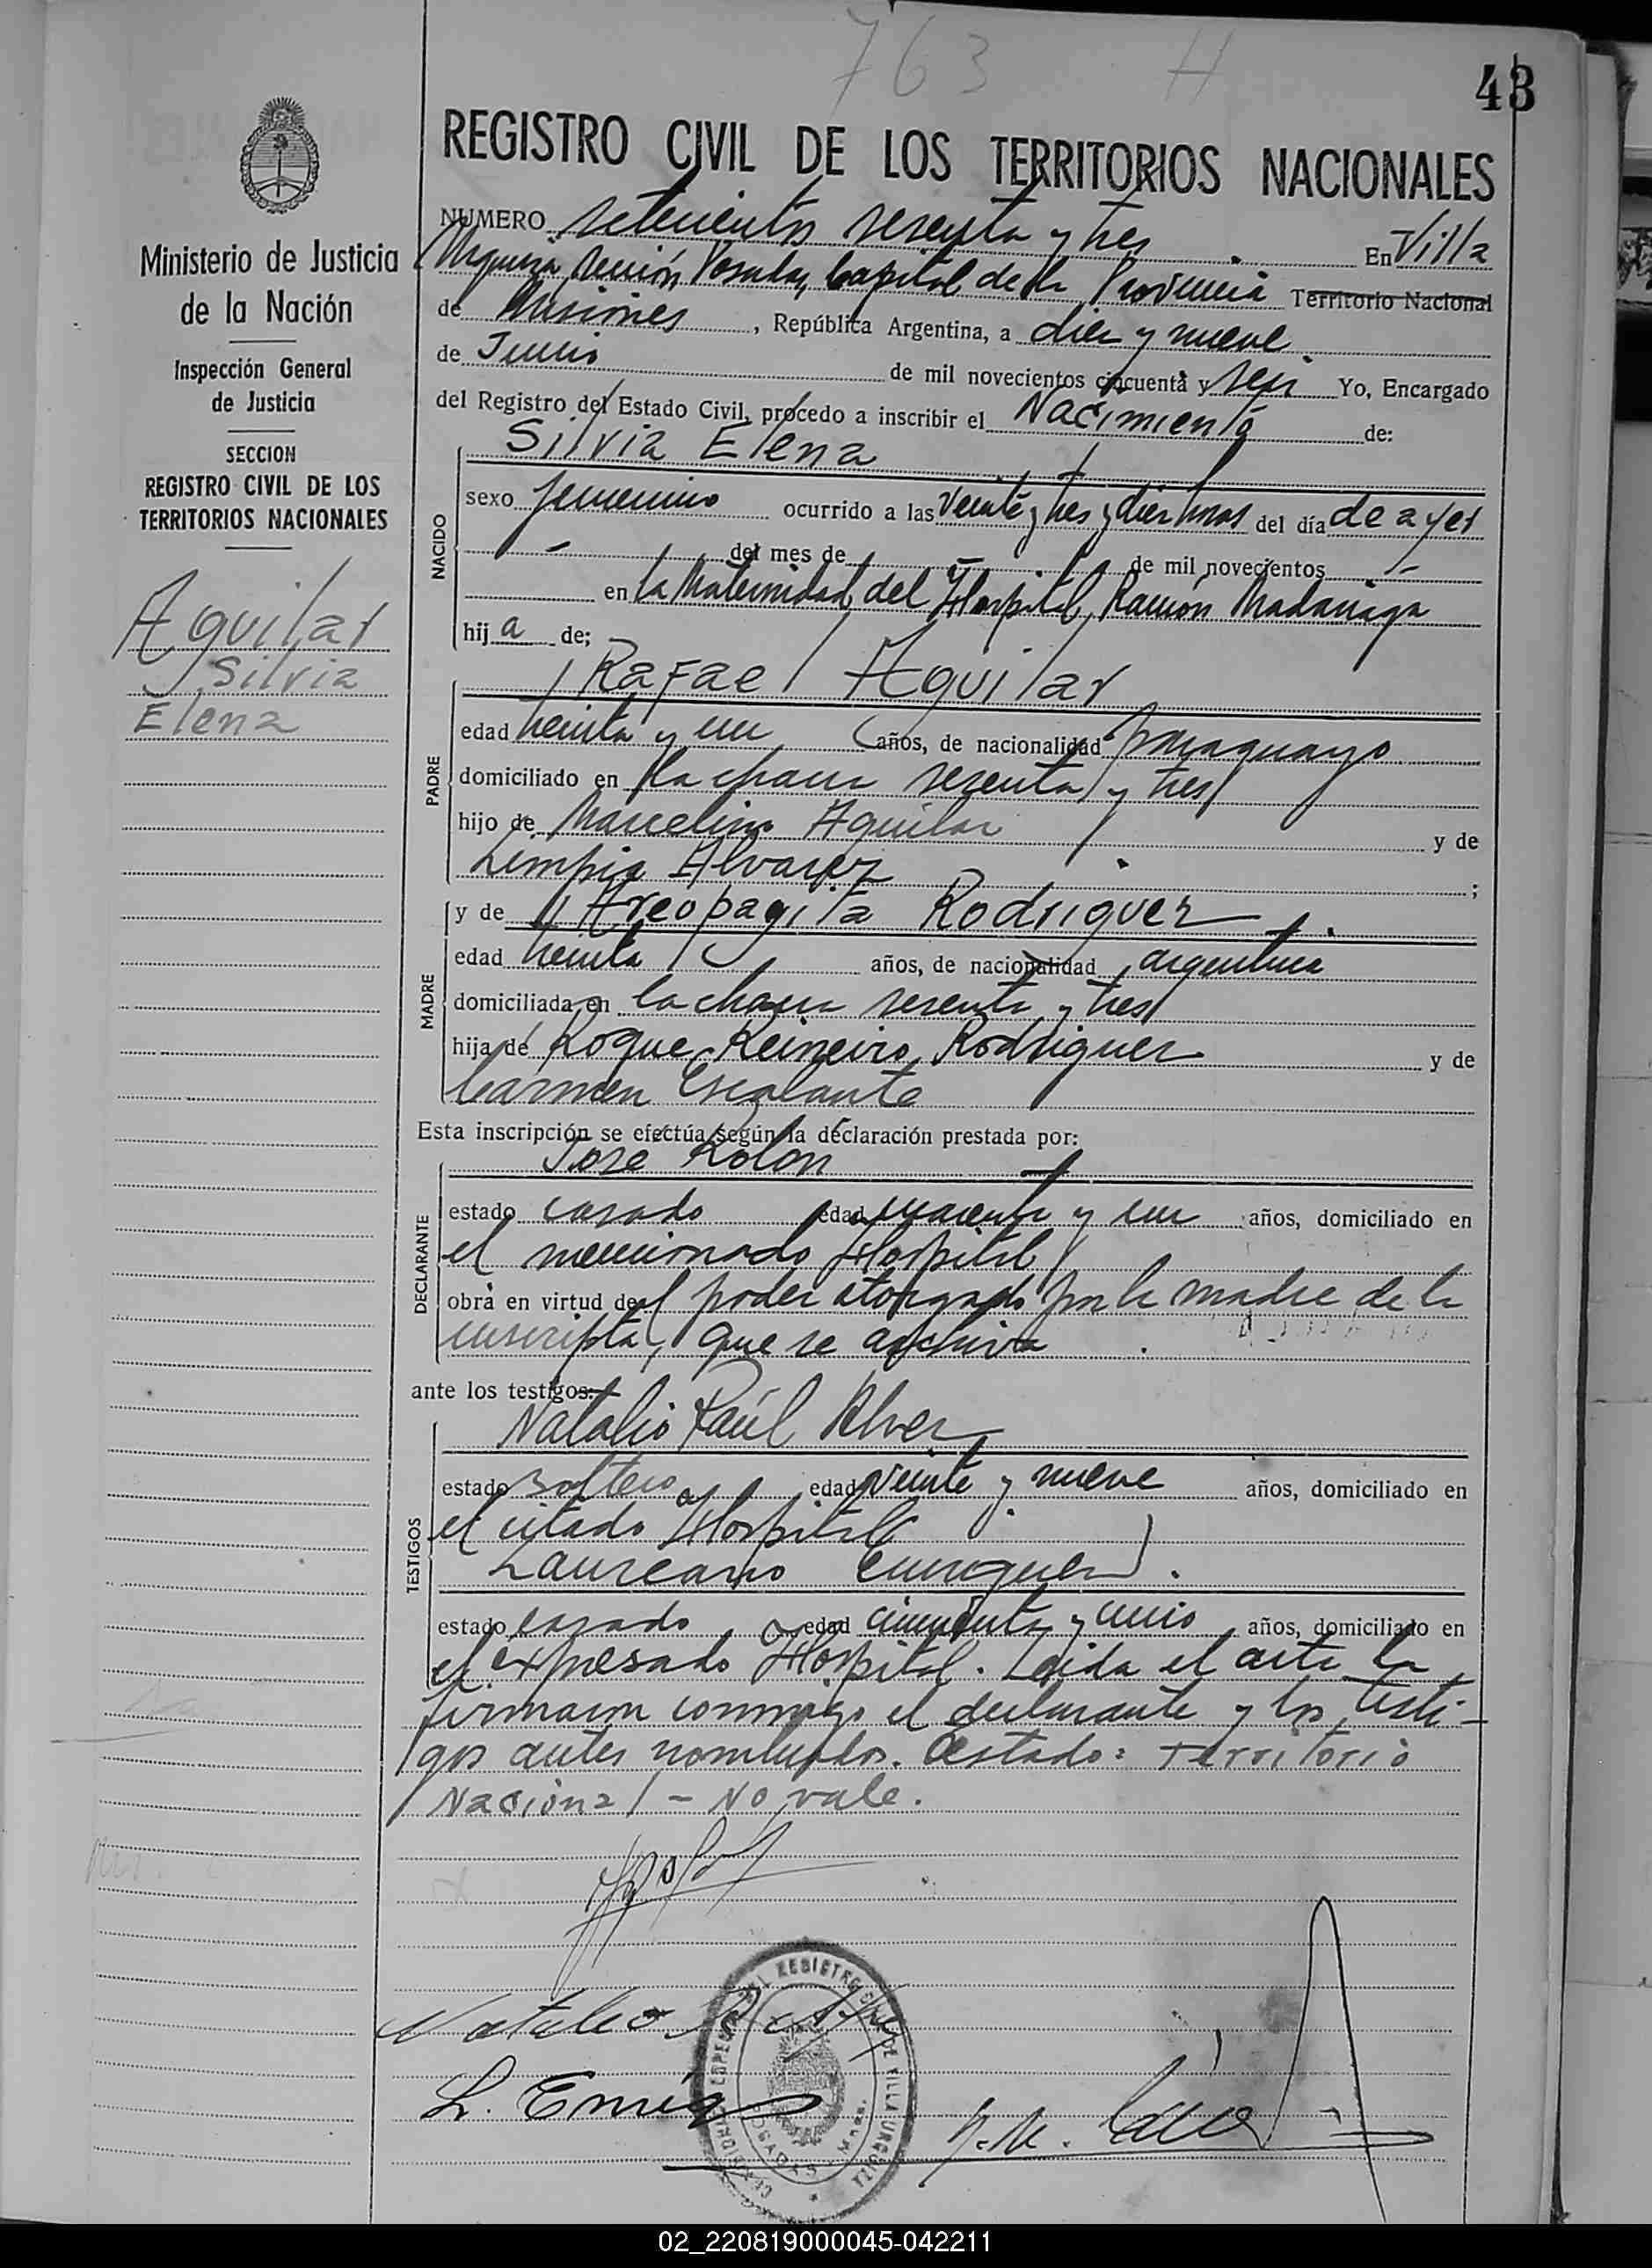 763 H
43
REGISTRO CIVIL DE LOS TERRITORIOS NACIONALES
Ministerio de Justicia
de la Nación
Inspección General
de Justicia
SECCION
REGISTRO CIVIL DE LOS
TERRITORIOS NACIONALES
Aguilar
Silvia
Elena
NUMERO setecientos sesenta y tres En Villa
Urquiza sección Posadas, Capital de la Provincia Territorio Nacional
de Misiones, República Argentina, a diez y nueve
de Junio de mil novecientos cincuenta y seis Yo, Encargado
del Registro del Estado Civil, procedo a inscribir el Nacimiento de:
NACIDO
Silvia Elena
sexo femenino ocurrido a las veinte y tres y diez horas del día de ayer
- del mes de - de mil novecientos -
en la Maternidad del Hospital Ramón Madariaga
hija de;
PADRE
Rafael Aguilar
edad treinta y un años, de nacionalidad paraguayo
domiciliado en la chacra sesenta y tres
hijo de Marcelino Aguilar y de
Limpia Alvarez ;
MADRE
y de Areopagita Rodriguez
edad treinta años, de nacionalidad argentina
domiciliada en la chacra sesenta y tres
hija de Roque Reineiro Rodriguez y de
Carmen Escalante
Esta inscripción se efectúa según la declaración prestada por:
DECLARANTE
Jose Rolon
estado casado edad cuarenta y un años, domiciliado en
el mencionado Hospital
obra en virtud del poder otorgado por la madre de la
inscripta, que se archiva
ante los testigos:
TESTIGOS
Natalio Raúl Alvez
estado soltero edad veinte y nueve años, domiciliado en
el citado Hospital
Laureano Enriquez.
estado casado edad cincuenta y cinco años, domiciliado en
el expresado Hospital. Leída el acta la
firmaron conmigo el declarante y los testi-
gos antes nombrados. Testado: Territorio
Nacional - No vale.
L. Enriq
REGISTRO DE VILLA URQUIZA
POSADAS Mnes.
02_220819000045-042211